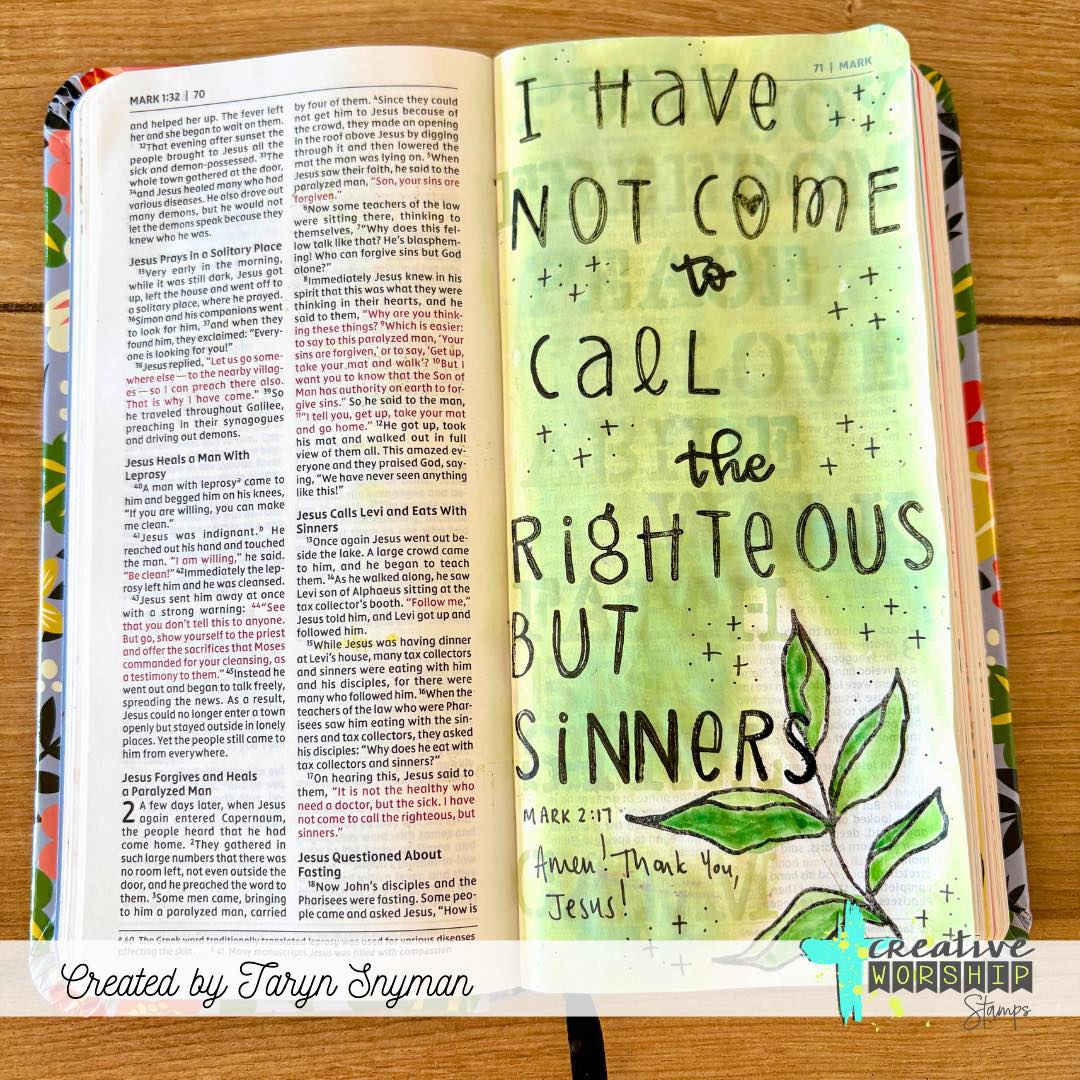 MARK 1:32 | 70
and helped her up. The fever left
her and she began to wait on them.
32That evening after sunset the
people brought to Jesus all the
sick and demon-possessed. 33The
whole town gathered at the door,
34and Jesus healed many who had
various diseases. He also drove out
many demons, but he would not
let the demons speak because they
knew who he was.
Jesus Prays in a Solitary Place
35Very early in the morning,
while it was still dark, Jesus got
up, left the house and went off to
a solitary place, where he prayed.
36Simon and his companions went
to look for him, 37and when they
found him, they exclaimed: “Every-
one is looking for you!”
38Jesus replied, “Let us go some-
where else—to the nearby villag-
es—so I can preach there also.
That is why I have come.” 39So
he traveled throughout Galilee,
preaching in their synagogues
and driving out demons.
Jesus Heals a Man With
Leprosy
40A man with leprosya came to
him and begged him on his knees,
“If you are willing, you can make
me clean.”
41Jesus was indignant.b He
reached out his hand and touched
the man. “I am willing,” he said.
“Be clean!” 42Immediately the lep-
rosy left him and he was cleansed.
43Jesus sent him away at once
with a strong warning: 44“See
that you don’t tell this to anyone.
But go, show yourself to the priest
and offer the sacrifices that Moses
commanded for your cleansing, as
a testimony to them.” 45Instead he
went out and began to talk freely,
spreading the news. As a result,
Jesus could no longer enter a town
openly but stayed outside in lonely
places. Yet the people still came to
him from everywhere.
Jesus Forgives and Heals
a Paralyzed Man
2 A few days later, when Jesus
again entered Capernaum,
the people heard that he had
come home. 2They gathered in
such large numbers that there was
no room left, not even outside the
door, and he preached the word to
them. 3Some men came, bringing
to him a paralyzed man, carried
by four of them. 4Since they could
not get him to Jesus because of
the crowd, they made an opening
in the roof above Jesus by digging
through it and then lowered the
mat the man was lying on. 5When
Jesus saw their faith, he said to the
paralyzed man, “Son, your sins are
forgiven.”
6Now some teachers of the law
were sitting there, thinking to
themselves, 7“Why does this fel-
low talk like that? He’s blasphem-
ing! Who can forgive sins but God
alone?”
8Immediately Jesus knew in his
spirit that this was what they were
thinking in their hearts, and he
said to them, “Why are you think-
ing these things? 9Which is easier:
to say to this paralyzed man, ‘Your
sins are forgiven,’ or to say, ‘Get up,
take your mat and walk’? 10But I
want you to know that the Son of
Man has authority on earth to for-
give sins.” So he said to the man,
11“I tell you, get up, take your mat
and go home.” 12He got up, took
his mat and walked out in full
view of them all. This amazed ev-
eryone and they praised God, say-
ing, “We have never seen anything
like this!”
Jesus Calls Levi and Eats With
Sinners
13Once again Jesus went out be-
side the lake. A large crowd came
to him, and he began to teach
them. 14As he walked along, he saw
Levi son of Alphaeus sitting at the
tax collector’s booth. “Follow me,”
Jesus told him, and Levi got up and
followed him.
15While Jesus was having dinner
at Levi’s house, many tax collectors
and sinners were eating with him
and his disciples, for there were
many who followed him. 16When the
teachers of the law who were Phar-
isees saw him eating with the sin-
ners and tax collectors, they asked
his disciples: “Why does he eat with
tax collectors and sinners?”
17On hearing this, Jesus said to
them, “It is not the healthy who
need a doctor, but the sick. I have
not come to call the righteous, but
sinners.”
Jesus Questioned About
Fasting
18Now John’s disciples and the
Pharisees were fasting. Some peo-
ple came and asked Jesus, “How is
a 40 The Greek word traditionally translated leprosy was used for various diseases
affecting the skin. b 41 Many manuscripts Jesus was filled with compassion
71 | MARK
I Have
NOT COME
to
Call
the
RigHTeOUS
BUT
SiNNeRS
MARK 2:17
Amen! Thank You,
Jesus!
Created by Taryn Snyman
creative
WORSHIP
Stamps